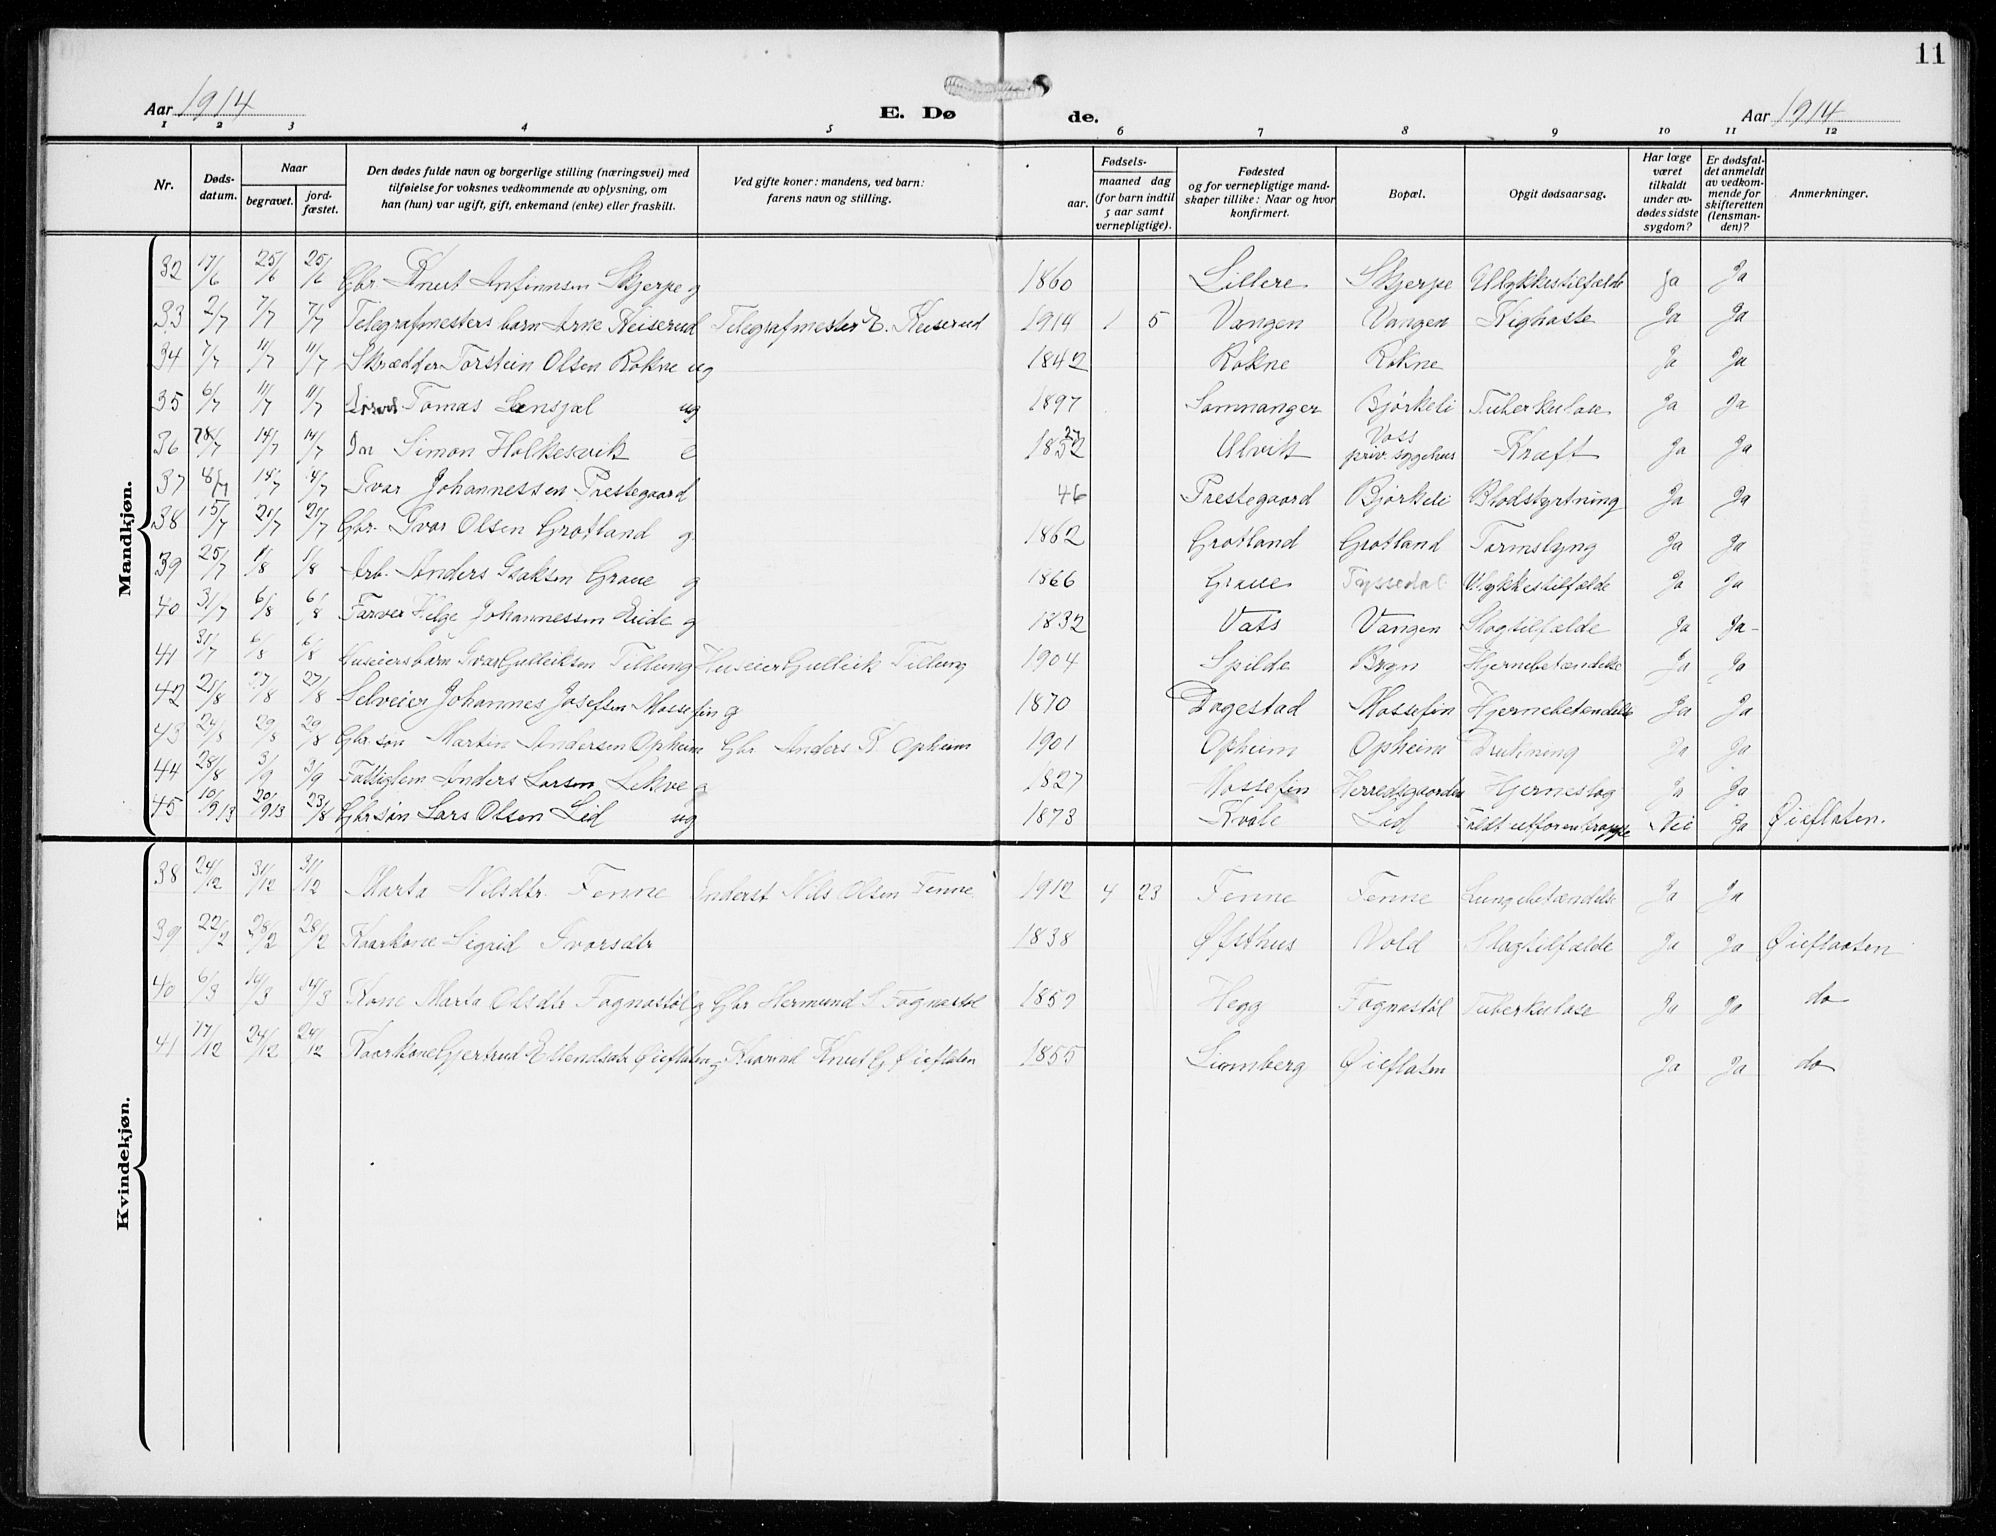 11
Aar 1914 E. Dø de. Aar 1914
1 2 3 4 5 6 7 8 9 10 11 12
Nr. Døds-datum. Naar begravet. jord-fæstet. Den dødes fulde navn og borgerlige stilling (næringsvei) med tilføielse for voksnes vedkommende av oplysning, om han (hun) var ugift, gift, enkemand (enke) eller fraskilt. Ved gifte koner: mandens, ved barn: farens navn og stilling. Fødsels- aar. maaned dag (for barn indtil 5 aar samt vernepligtige). Fødested og for vernepligtige mand-skaper tillike: Naar og hvor konfirmert. Bopæl. Opgit dødsaarsag. Har læge været tilkaldt under av-dødes sidste sygdom? Er dødsfal-det anmeldt av vedkom-mende for skifteretten (lensman-den)? Anmerkninger.
Mandkjøn.
32 17/6 25/6 25/6 Gbr Knut Anfinnsen Skjerpe g 1860 Lillere Skjerpe Ulykkestilfælde Ja Ja
33 2/7 7/7 7/7 Telegrafmesters barn Arne Keiserud Telegrafmester E. Keiserud 1914 1 5 Vangen Vangen Kighoste Ja Ja
34 7/7 11/7 11/7 Skrædder Torstein Olsen Rokne ug 1842 Rokne Rokne Ja Ja
35 6/7 11/7 11/7 Tomas Lensjøl ug 1897 Samnanger Bjørkeli Tuberkulose Ja Ja
36 14/7 14/7 Simon Holkesvik e 1832 27 Ulvik Voss priv. sygehus Kræft Ja Ja
37 8/7 14/7 14/7 Ivar Johannessen Prestegaard 46 Prestegaard Bjørkeli Blodstyrtning Ja Ja
38 15/7 21/7 21/7 Gbr. Ivar Olsen Grotland g. 1862 Grotland Grotland Tarmslyng Ja Ja
39 25/7 1/8 1/8 Arb. Anders Isaksen Graue g 1866 Graue Tyssedal Ulykkestilfælde Ja Ja
40 31/7 6/8 6/8 Farver Helge Johannessen Eide g 1832 Vats Vangen Slagtilfælde Ja Ja
41 31/7 6/8 6/8 Huseiers barn Ivar Gulleiksen Tillung Huseier Gulleik Tillung 1904 Spilde Bygn Hjernebetændelse Ja Ja
42 21/8 27/8 27/8 Selveier Johannes Josefsen Mossefin g 1870 Dagestad Mossefin Hjernebetændelse Ja Ja
43 24/8 29/8 29/8 Gbr.søn Martin Andersen Opheim Gbr Anders K Opheim 1901 Opheim Opheim Drukning Ja Ja
44 28/8 3/9 3/9 Fattiglem Anders Larsen Lekve g 1827 Mossefin Herredsgaarden Hjerneslag Ja Ja
45 10/9 13 20/9 13 23/8 Gbr søn Lars Olsen Lid ug 1873 Kvale Lid Faldt utfor en trappe Nei Ja Øieflaten.
Kvindekjøn.
38 24/12 31/12 31/12 Marta Nilsdtr. Fenne Inderst Nils Olsen Fenne 1912 4 23 Fenne Fenne Lungebetændelse Ja Ja
39 22/2 28/2 28/2 Kaarkone Sigrid Ivarsdtr 1838 Øfsthus Vold Slagtilfælde Ja Ja Øieflaaten
40 6/3 14/3 14/3 Kone Marta Olsdtr Fognastøl g Gbr Hermund S Fognastøl 1859 Hegg Fognastøl Tuberkulose Ja Ja do
41 17/12 24/12 24/12 Kaarkone Gjertrud Ellendsdtr Øieflaten g Kaarmd Knut G Øieflaten 1855 Liumberg Øieflaten Ja Ja do